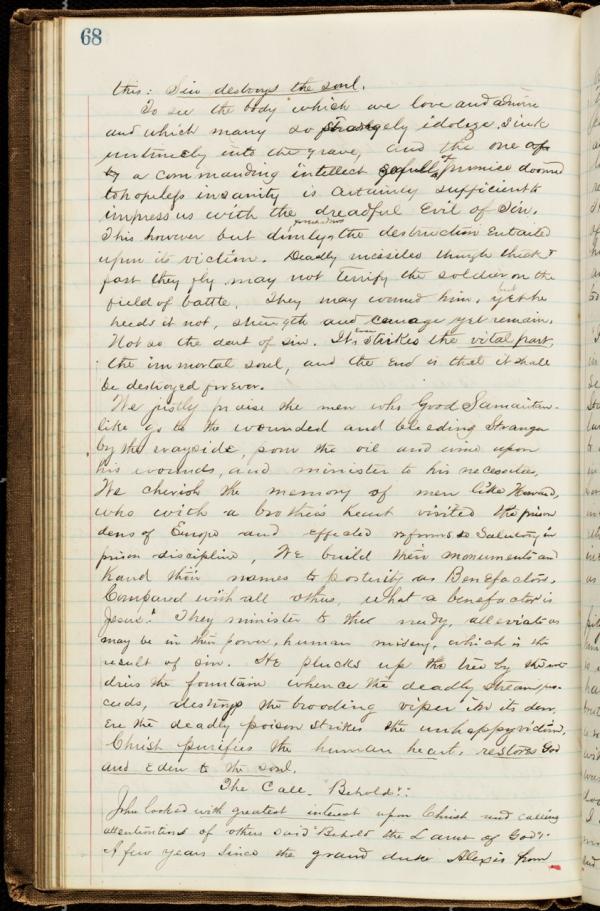 68
this: Sin destroys the soul.
To see the body which we love and admire
and which many so strangely idolize, sink
untimely into the grave, and the one of
a commanding intellect full of promise doomed
to hopeless insanity is certainly sufficient to
impress us with the dreadful Evil of Sin.
This however but dimly the destruction Entailed
upon its victim. Deadly missiles though thick &
fast they fly, may not terrify the soldier on the
field of battle. They may wound him, but yet he
heeds it not, strength and courage yet remain.
Not so the dart of sin. It strikes the vital part,
the immortal soul, and the End is that it shall
be destroyed forever.
We justly praise the men who Good Samaritan-
like go to the wounded and bleeding Stranger
by the wayside, pour the oil and wine upon
his wounds, and minister to his necessities.
We cherish the memory of men like Howard,
who with a brother's heart visited the prison
dens of Europe and effected reforms so Salutary in
prison discipline, We build their monuments and
hand their names to posterity as Benefactors.
Compared with all others, what a benefactor is
Jesus! They minister to the needy, alleviate as
may be in their power, human misery, which is the
result of sin. He plucks up the tree by the root
dries the fountain whence the deadly stream pro-
ceeds, destroys the brooding viper in its den,
Ere the deadly poison strikes the unhappy victim.
Christ purifies the human heart, restores God
and Eden to the soul.
The Call. Behold!:
John looked with greatest interest upon Christ and calling
attentions of others said "Behold the Lamb of God":
A few years since the grand duke Alexis from